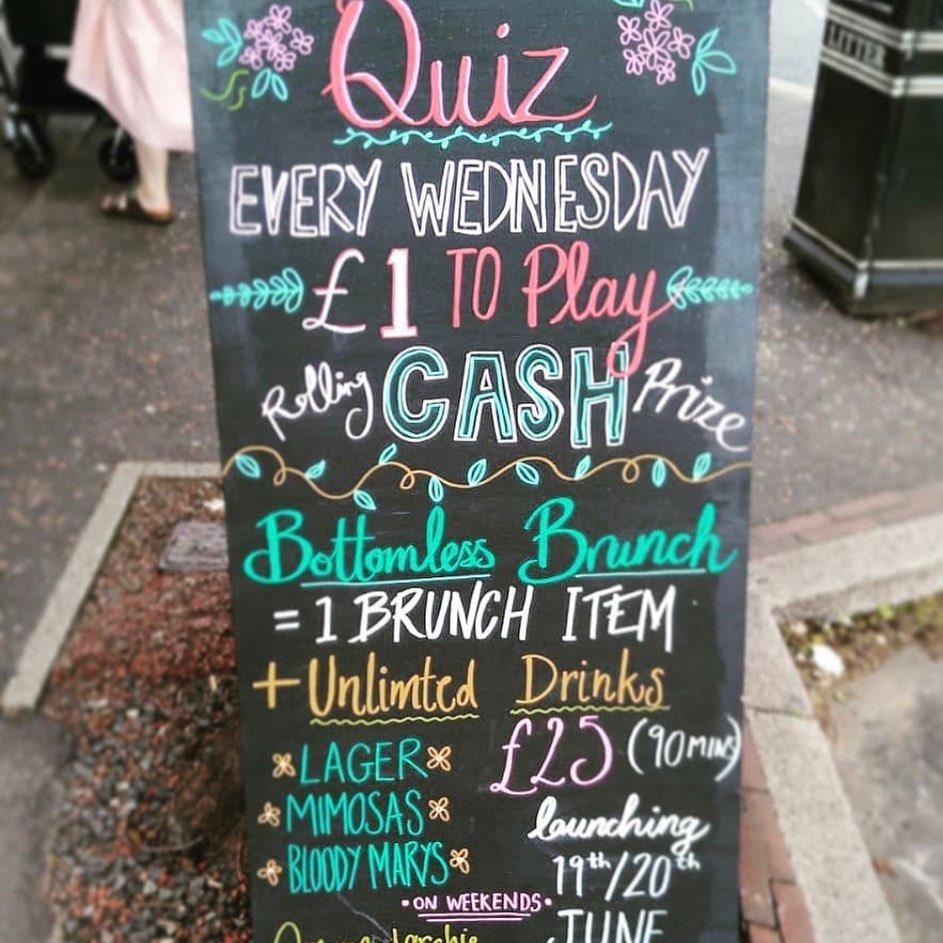 Quiz
EVERY WEDNESDAY
£1 TO Play
Rolling CASH Prize
Bottomless Brunch
= 1 BRUNCH ITEM
+ Unlimted Drinks
LAGER
MIMOSAS
BLOODY MARYS
£25 (90 MINS)
launching
19th/20th
JUNE
• ON WEEKENDS •
LITTER